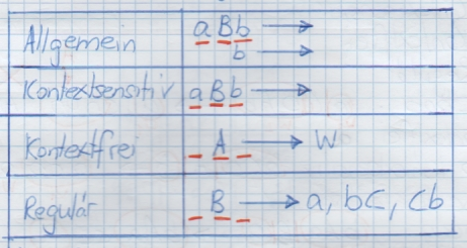 Allgemein aBb →
b →
Kontextsensitiv aBb →
Kontextfrei A → W
Regulär B → a, bC, Cb